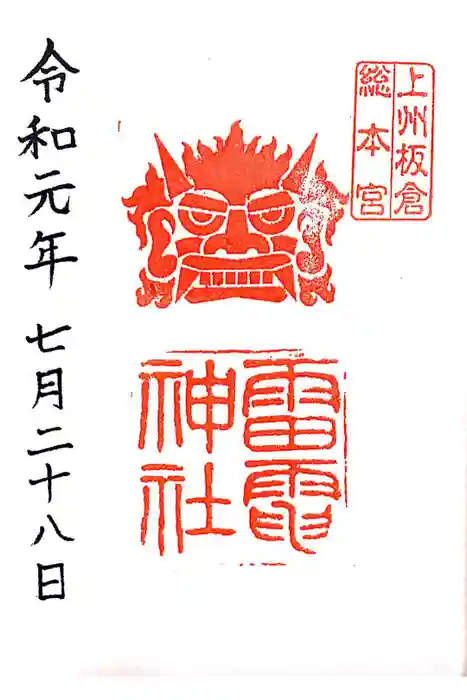 上州板倉
総本宮
雷電
神社
令和元年 七月二十八日